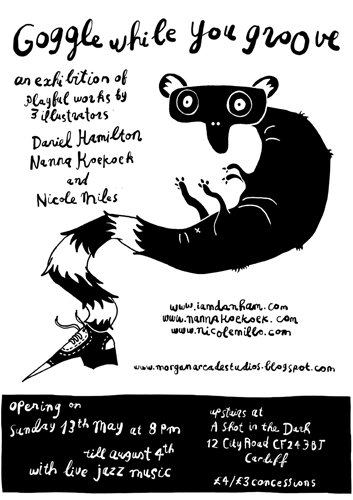 Goggle while you groove
an exhibition of
playful works by
3 illustrators
Daniel Hamilton
Nanna Koekoek
and
Nicole Miles
www.iamdanham.com
www.nannakoekoek.com
www.nicolemillo.com
www.morganarcadestudios.blogspot.com
opening on
sunday 13th May at 8pm
till august 4th
with live jazz music
upstairs at
A Shot in the Dark
12 City Road CF24 3BJ
Cardiff
£4/£3 concessions